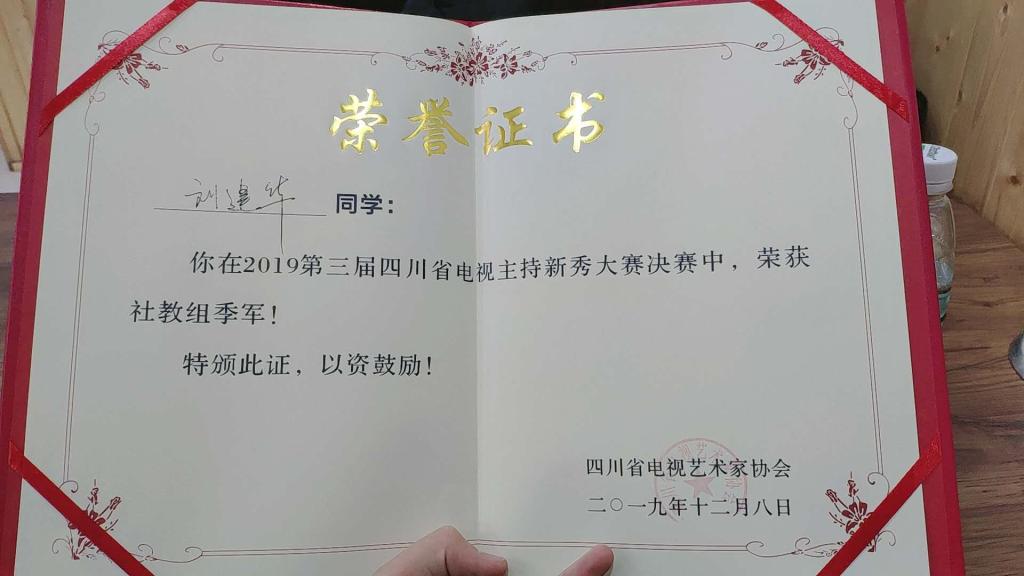 荣誉证书
刘建华 同学：
你在2019第三届四川省电视主持新秀大赛决赛中，荣获
社教组季军！
特颁此证，以资鼓励！
四川省电视艺术家协会
二〇一九年十二月八日